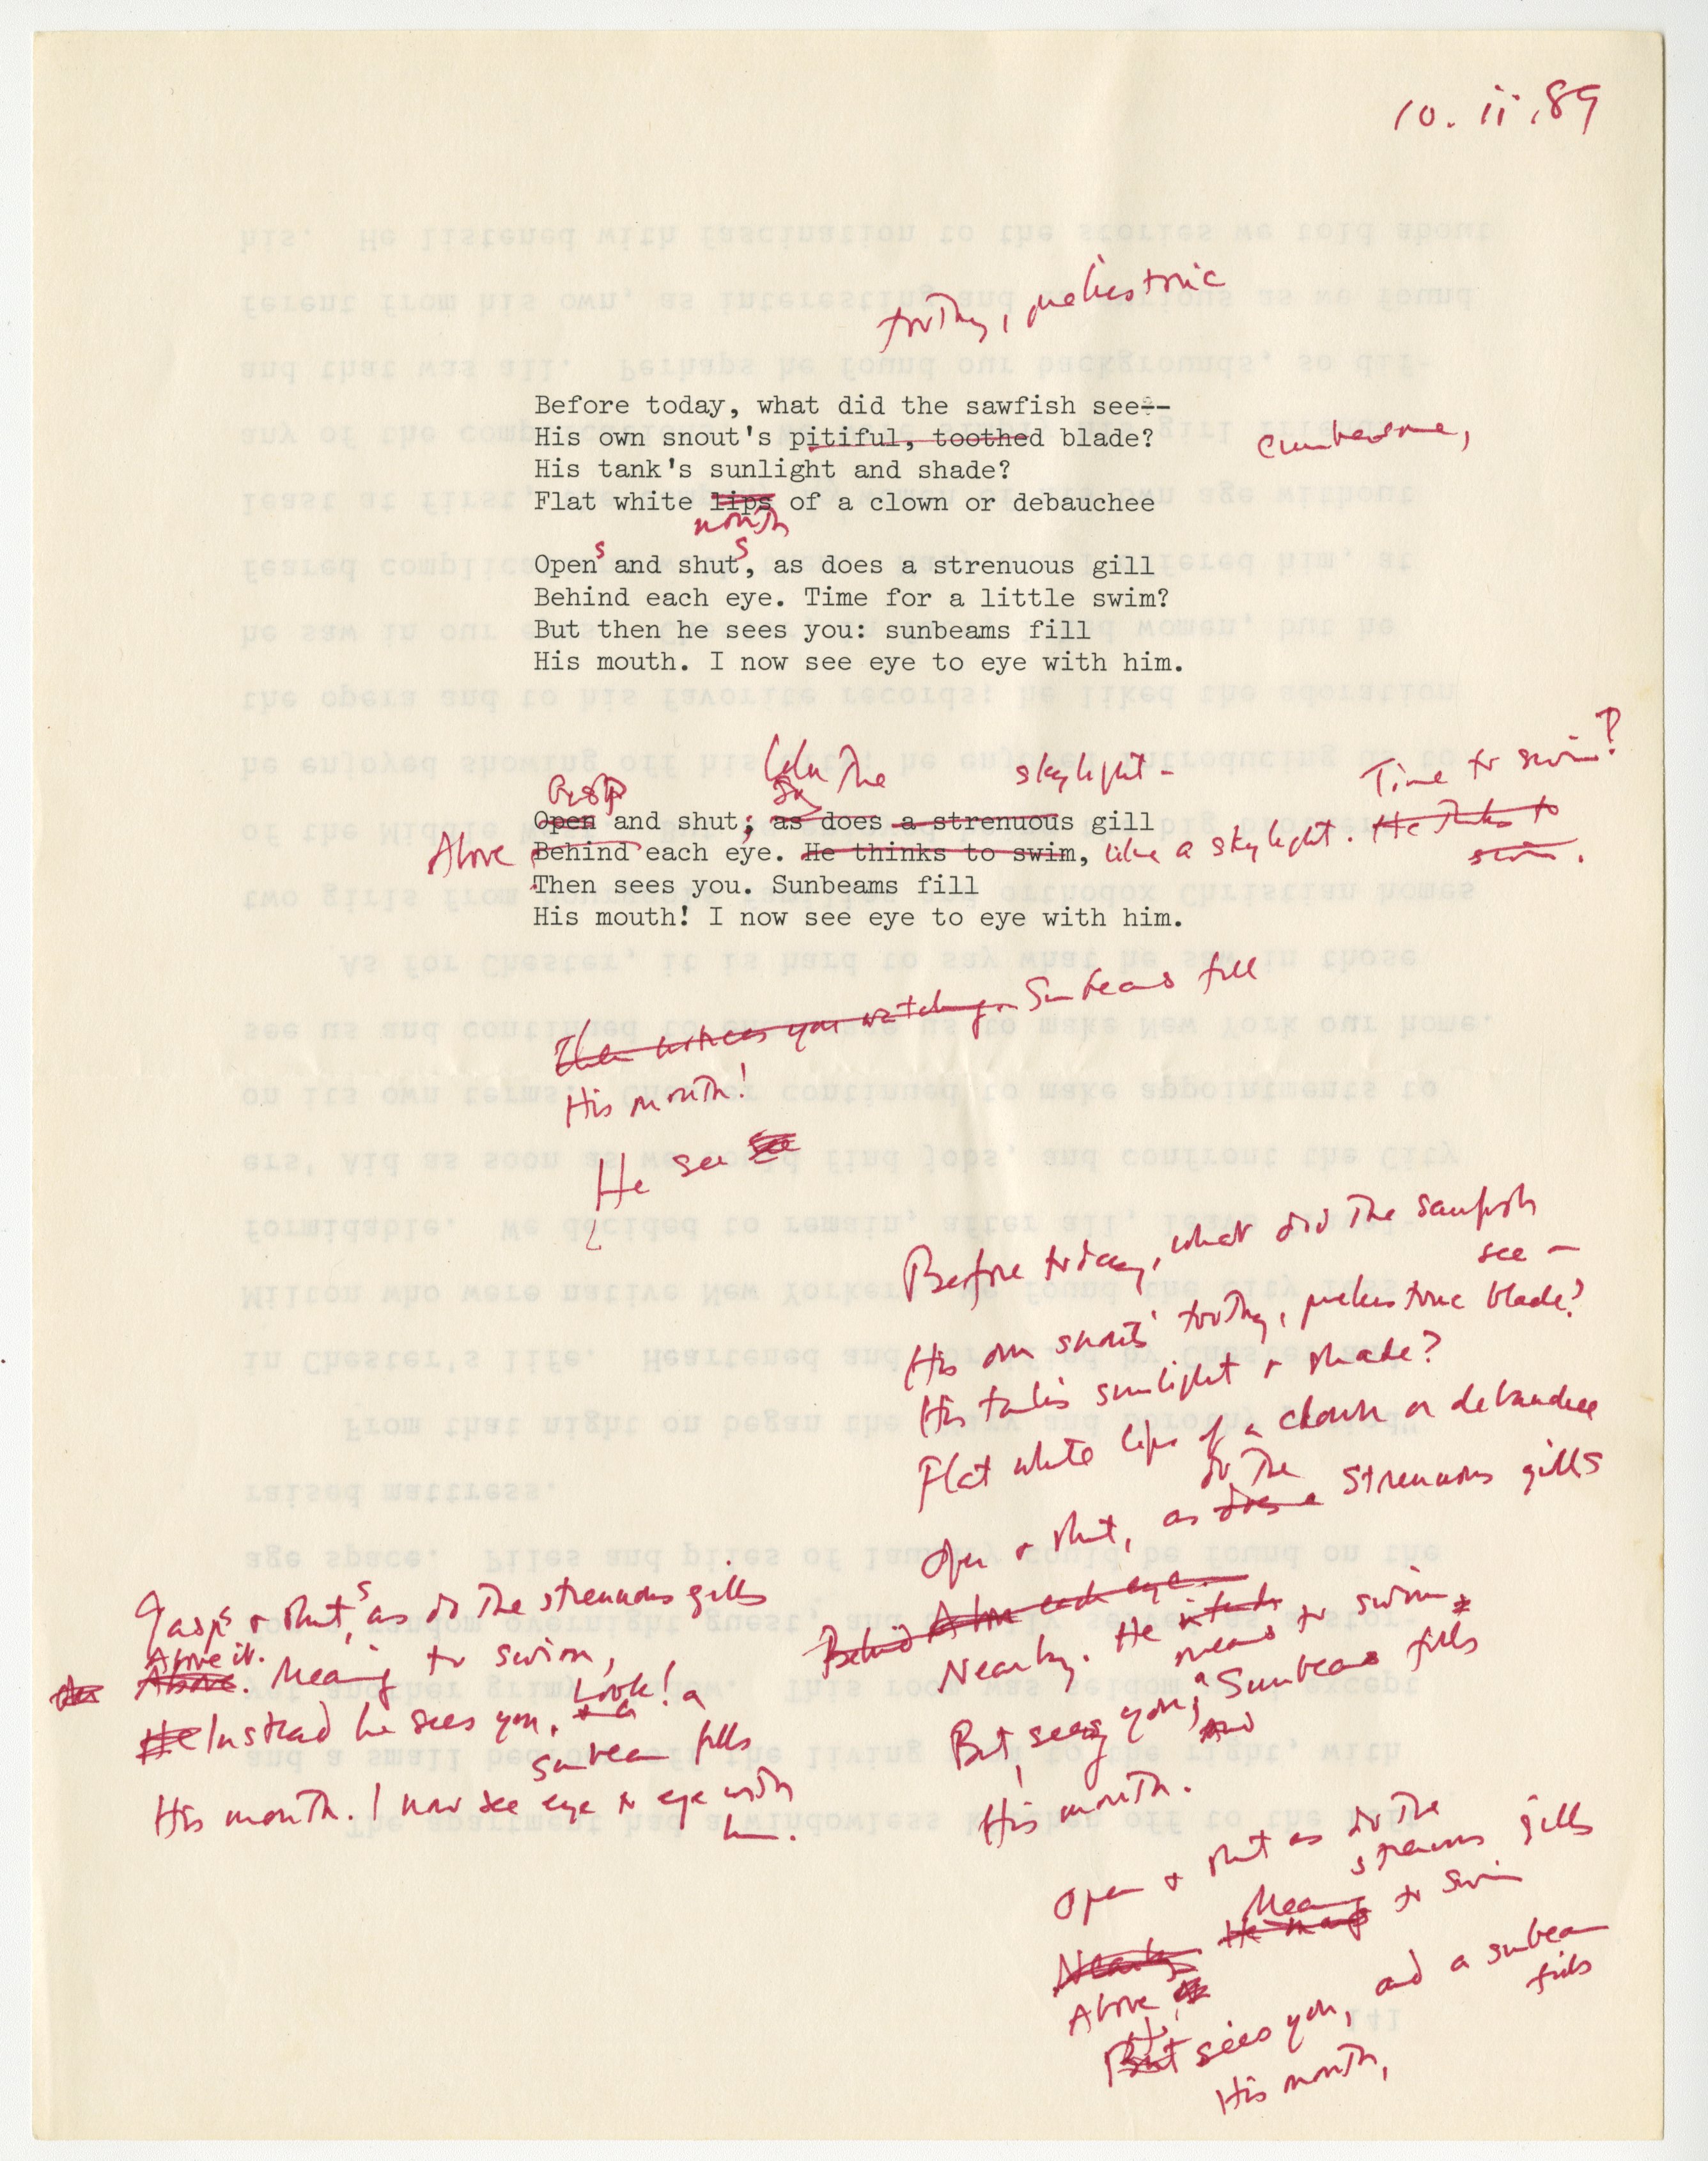 10. ii. 89
toothy, prehistoric
Before today, what did the sawfish see--
His own snout's pitiful, toothed blade?
cumbersome,
His tank's sunlight and shade?
Flat white lips of a clown or debauchee
mouth
s s
Open and shut, as does a strenuous gill
Behind each eye. Time for a little swim?
But then he sees you: sunbeams fill
His mouth. I now see eye to eye with him.
Time to swim?
like the skylight-
Gasp
Open and shut; as does a strenuous gill
Above Behind each eye. He thinks to swim, like a skylight. He thinks to
swim.
Then sees you. Sunbeams fill
His mouth! I now see eye to eye with him.
Then notices you watching. Sunbeams fill
His mouth!
He see see
Before today, what did the sawfish
see —
His own snout's toothy, prehistoric blade?
His tank's sunlight + shade?
Flat white lips of a clown or debauchee
do the
Open + shut, as does a strenuous gills
Behind Above each eye.
Nearby. He intends to swim
means
But sees you, Sunbeams fills
and
His mouth.
Gasps + shuts, as do the strenuous gills
Above it.
Above. Meaning to swim,
Look! a
He Instead he sees you, + a
sunbeam fills
His mouth. I now see eye to eye with
him.
Open + shut as do the
strenuous gills
Meaning
Nearby He means to swim
Above it,
But sees you, and a sunbeam
fills
His mouth,